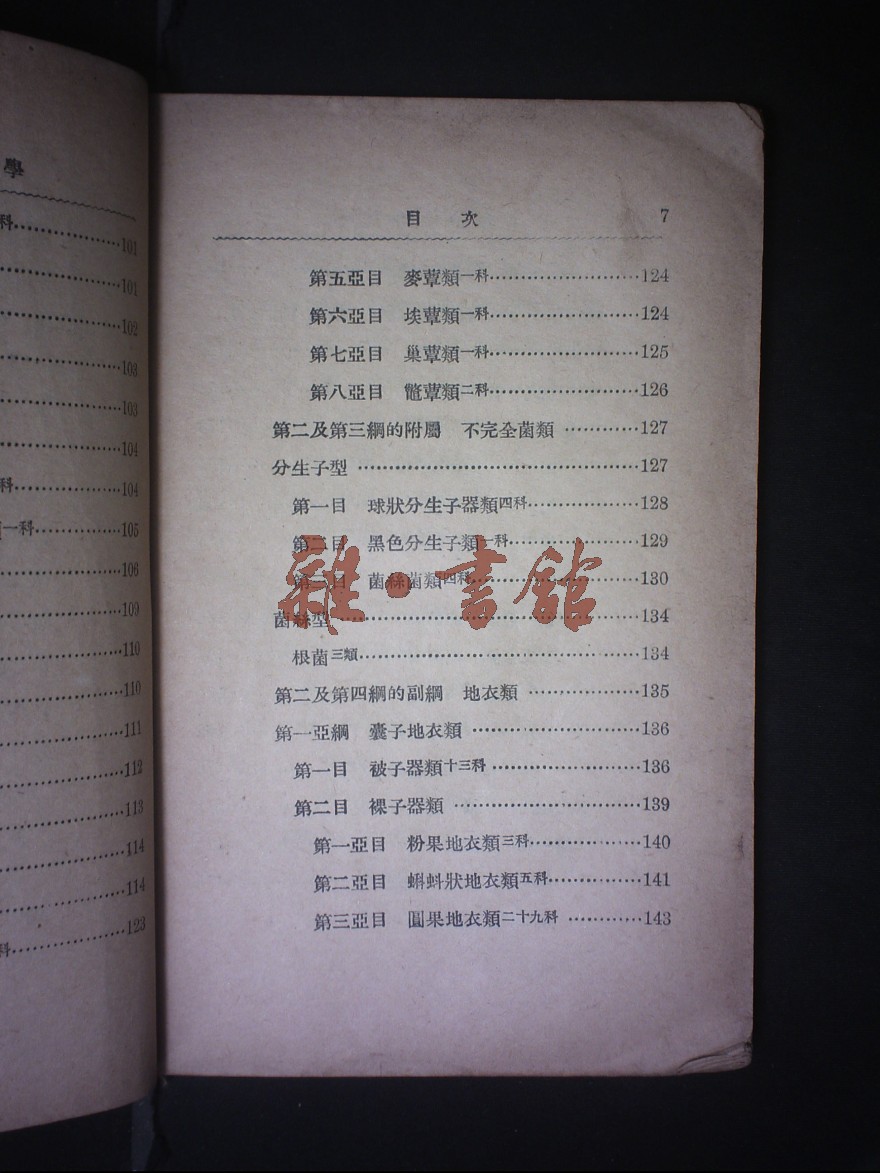 學
科……101
……101
……102
……103
……103
……104
科……104
一科……105
……106
……109
……110
……110
……111
……112
……113
……114
……114
科……123
目 次 7
第五亞目 麥蕈類一科……124
第六亞目 埃蕈類一科……124
第七亞目 巢蕈類一科……125
第八亞目 鼈蕈類二科……126
第二及第三綱的附屬 不完全菌類……127
分生子型……127
第一目 球狀分生子器類四科……128
第二目 黑色分生子類一科……129
第三目 菌絲菌類四科……130
菌絲型……134
根菌三類……134
第二及第四綱的副綱 地衣類……135
第一亞綱 囊子地衣類……136
第一目 被子器類十三科……136
第二目 裸子器類……139
第一亞目 粉果地衣類三科……140
第二亞目 蝌蚪狀地衣類五科……141
第三亞目 圓果地衣類二十九科……143
雜·書館